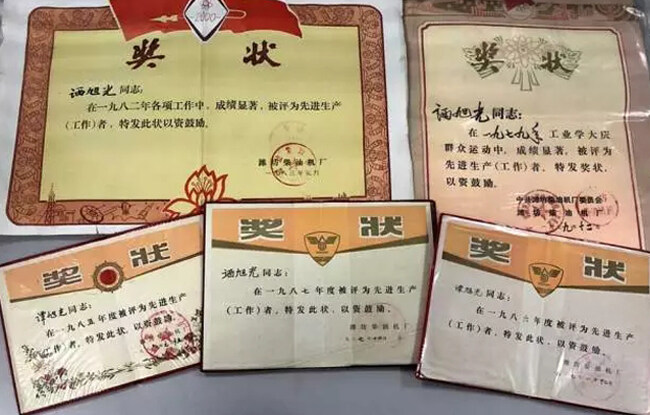 2000
奖 状
谭旭光同志：
在一九八二年各项工作中，成绩显著，被评为先进生产
（工作）者，特发此状以资鼓励。
潍坊柴油机厂
一九八三年元月
奖 状
谭旭光同志：
在一九七九年工业学大庆
群众运动中，成绩显著，被评为
先进生产（工作）者，特发奖状，
以资鼓励。
中共潍坊柴油机厂委员会
潍坊柴油机厂
奖 状
谭旭光同志：
在一九八五年度被评为先进生产
（工作）者，特发此状，以资鼓励。
奖 状
谭旭光同志：
在一九八七年度被评为先进生产
（工作）者，特发此状，以资鼓励。
潍坊柴油机厂
奖 状
谭旭光同志：
在一九八六年度被评为先进生产
（工作）者，特发此状，以资鼓励。
潍坊柴油机厂